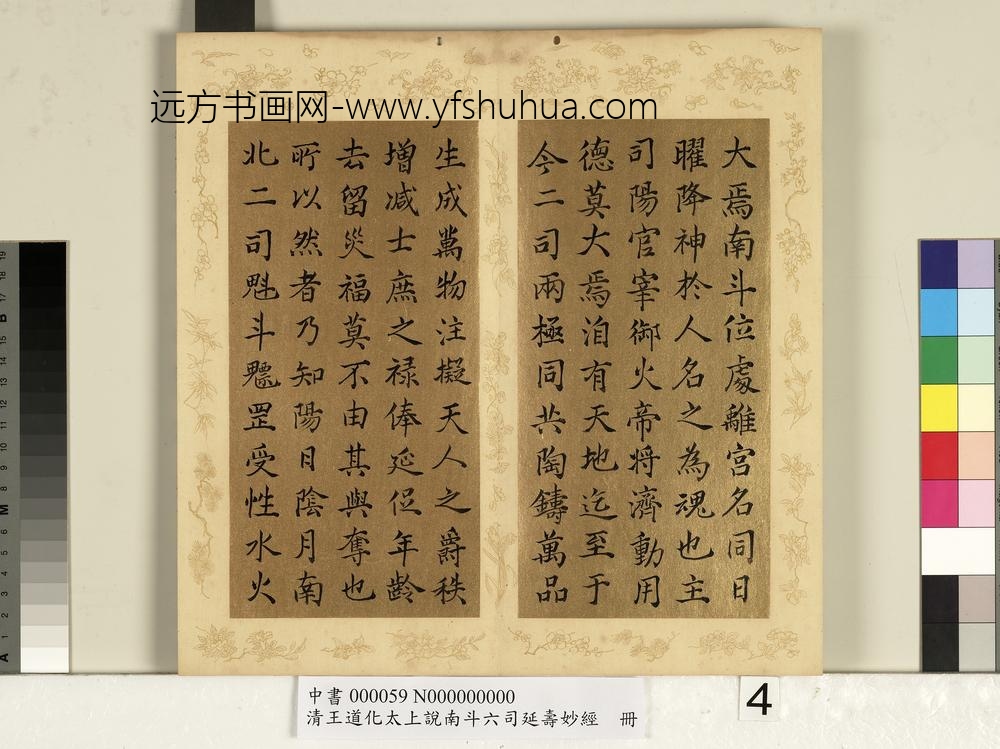 远方书画网-www.yfshuhua.com
大焉南斗位處離宮名同日
曜降神於人名之為魂也主
司陽官宰御火帝将濟動用
德莫大焉洎有天地迄至于
今二司兩極同共陶鑄萬品
生成萬物注擬天人之爵秩
增减士庶之禄俸延促年齡
去留災福莫不由其與奪也
所以然者乃知陽日陰月南
北二司魁斗魒罡受性水火
中書 000059 N000000000
清王道化太上說南斗六司延壽妙經 冊
4